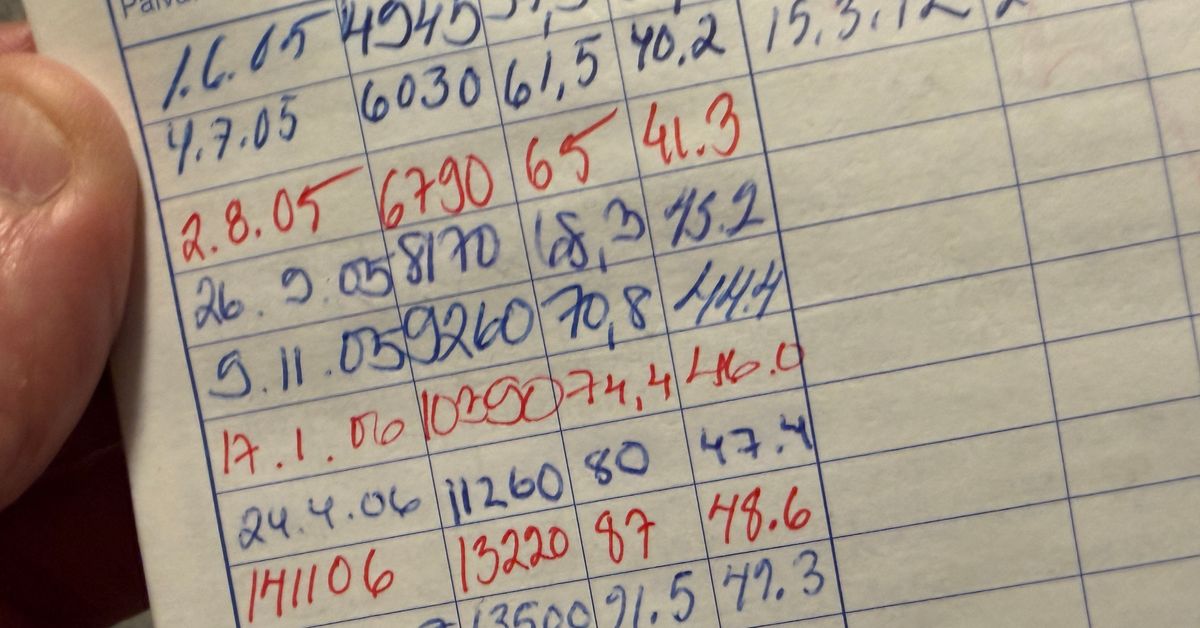 1.6.05 4945
4.7.05 6030 61,5 40.2 15.3.12
2.8.05 6790 65 41.3
26.9.05 8170 68,3 43.2
9.11.05 9260 70,8 44.4
17.1.06 10390 74,4 46.0
24.4.06 11260 80 47.4
141106 13220 87 48.6
13500 91.5 49.3